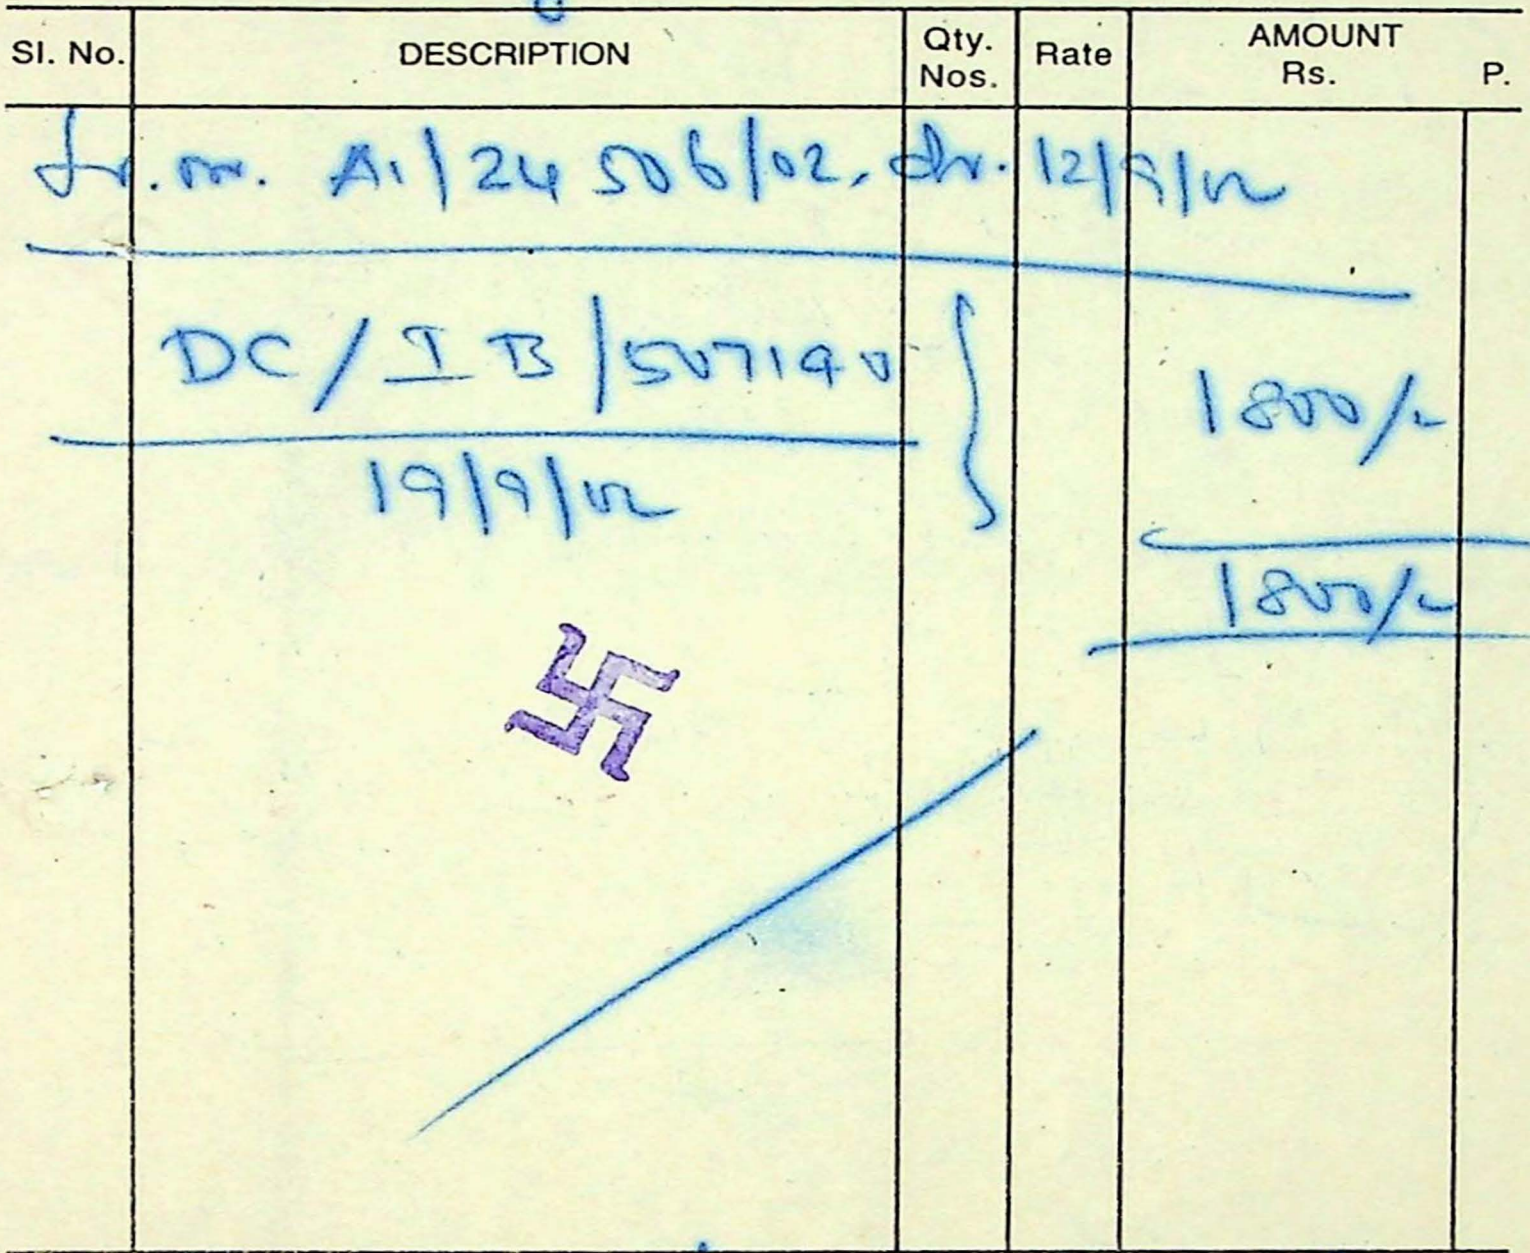 Sl. No. DESCRIPTION Qty. Nos. Rate AMOUNT Rs. P.
A1/24506/02, dt. 12/9/02
DC/IB/507190
1800/-
19/9/02
1800/-